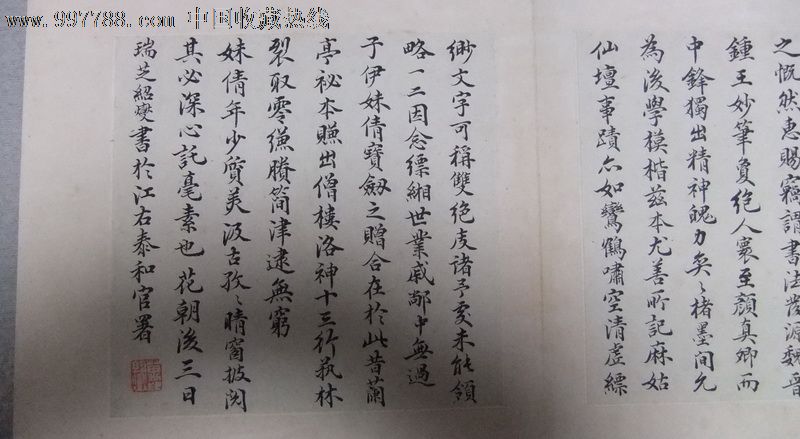 www.997788.com 中国收藏热线
之慨然惠賜竊謂書法發源魏晉
鍾王妙筆負絕人寰至顏真卿而
中鋒獨出精神魄力奐奐楮墨間允
為後學模楷茲本尤善所記麻姑
仙壇事蹟亦如鸞鶴嘯空清虛縹
緲文字可稱雙絕受諸予友未能領
略一二因念縹緗世業戚鄰中無過
于伊妹倩寶劍之贈合在於此昔蘭
亭祕本賺出僧樓洛神十三行執林
裂取零縑賸簡津逮無窮
妹倩年少質美汲古孜孜晴窗披閱
其必深心託毫素也花朝後三日
瑞芝紹燮書於江右泰和官署